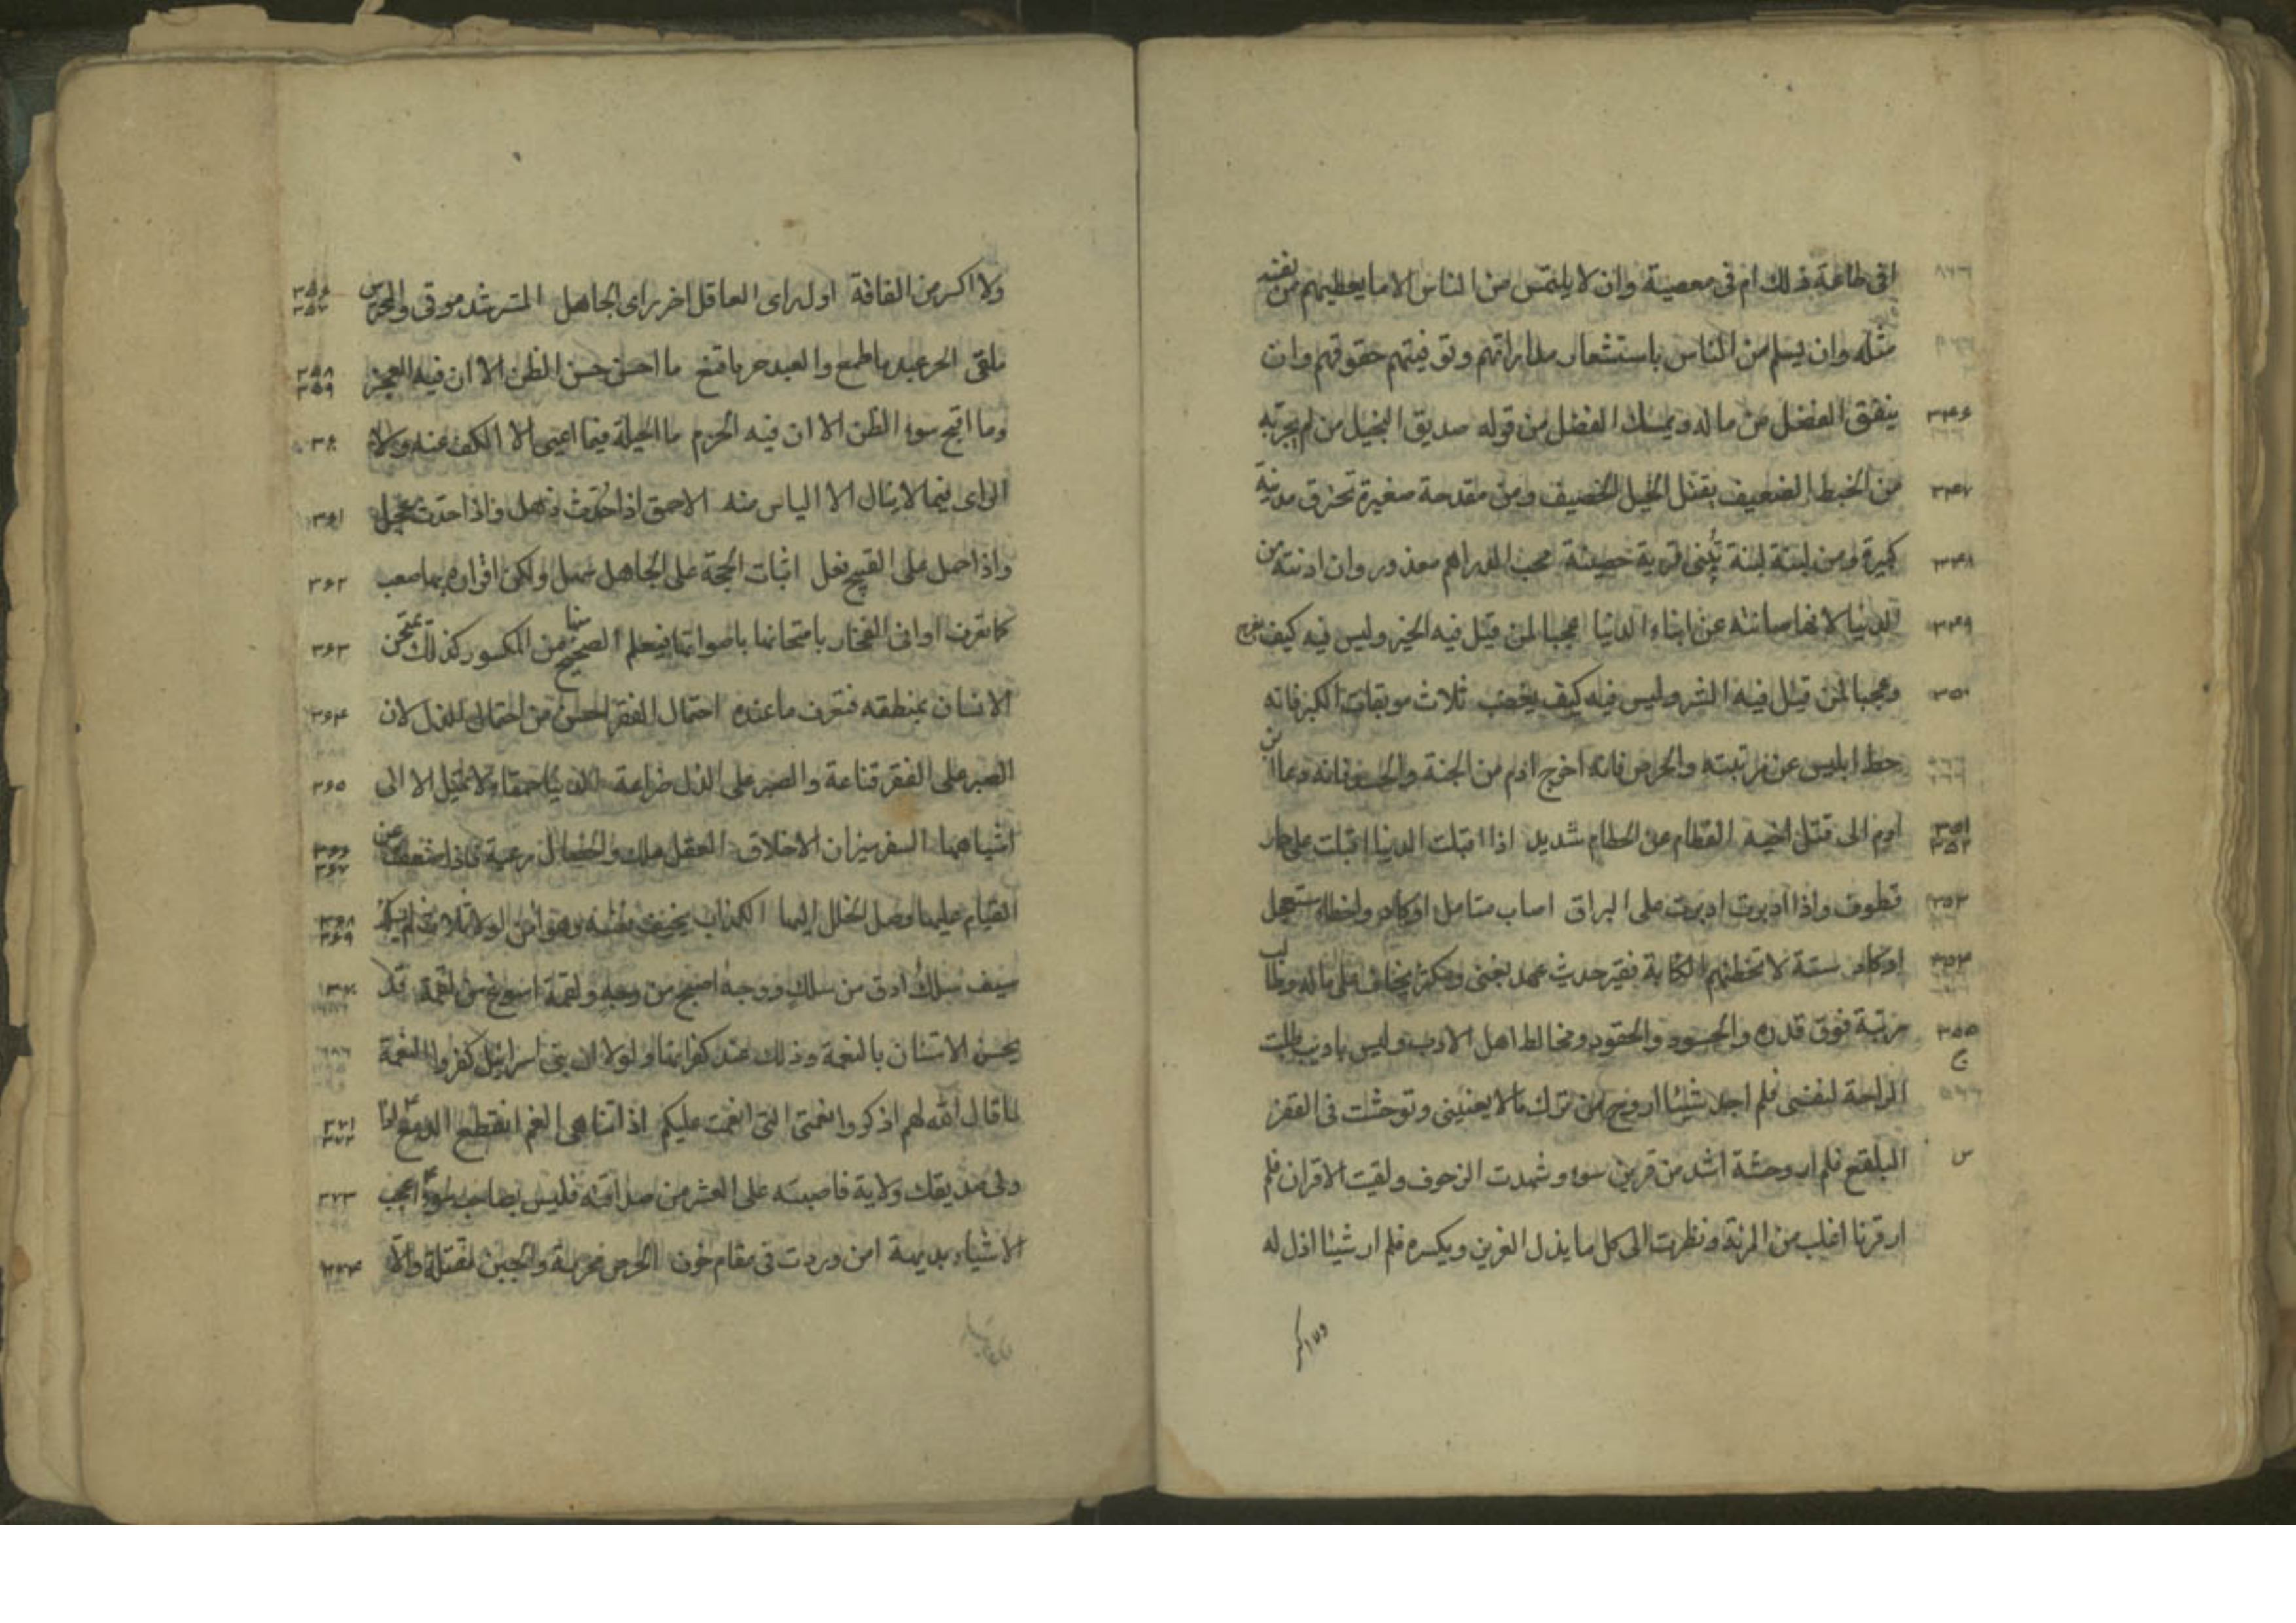 افى طاعة ذلك ام فى معصية وان لا يلتمس من الناس الا ما يعطيهم من نفسه
مثله وان يسلم من الناس باستشعار مداراتهم وتوفيتهم حقوقهم وان
ينفق الفضل من ماله ويمسك الفضل من قوله صديق البخيل من لم يجربه
من الخيط الضعيف يفتل الحبل الخصيف ومن مقدحة صغيرة تحترق مدينة
كبيرة ومن لبنة لبنة تبنى قرية حصينة محب الدراهم معذور وان ادنته من
الدنيا لانها صانته عن ابناء الدنيا عجبا لمن قيل فيه الخير وليس فيه كيف يفرح
وعجبا لمن قيل فيه الشر وليس فيه كيف يغضب ثلاث موبقات الكبر فانه
حط ابليس عن مرتبته والحرص فانه اخرج ادم من الجنة والحسد فانه دعا ابن
ادم الى قتل اخيه الفطام عن الحطام شديد اذا اقبلت الدنيا اقبلت على حمار
قطوف واذا ادبرت ادبرت على البراق اصاب متامل او كاد واخطا مستعجل
او كاد ستة لا تخطئهم الكابة فقير حديث عهد بغنى ومكثر يخاف على ماله وطالب
مرتبة فوق قدره والحسود والحقود ومخالط اهل الادب وليس باديب طلبت
الراحة لنفسى فلم اجد شيئا اروح من ترك ما لا يعنينى وتوحشت فى القفر
البلقع فلم ار وحشة اشد من قرين سوء وشهدت الزحوف ولقيت الاقران فلم
ار قرنا اغلب من المرئة ونظرت الى كل ما يذل العزيز ويكسره فلم ار شيئا اذل له
ولا اكسر
٣٤٦
٣٤٧
٣٤٨
٣٤٩
٣٥٠
٣٥١
٣٥٢
٣٥٣
٣٥٤
٣٥٥
ولا اكسر من الفاقة اول راى العاقل اخر راى الجاهل المسترشد موقى والمحترس
ملقى الحر عبد ما طمع والعبد حر ما قنع ما احسن حسن الظن الا ان فيه العجز
وما اقبح سوء الظن الا ان فيه الحزم ما الحيلة فيما اعيى الا الكف عنه ولا
الراى فيما لا ينال الا الياس منه الاحمق اذا حدث ذهل واذا حدث عجل
واذا حمل على القبيح فعل اثبات الحجة على الجاهل سهل ولكن اقراره بها صعب
كما تعرف اوانى الفخار بامتحانها باصواتها فيعلم الصحيح منها من المكسور كذلك يمتحن
الانسان بمنطقه فتعرف ما عنده احتمال الفقر احسن من احتمال الذل لان
الصبر على الفقر قناعة والصبر على الذل ضراعة الدنيا حمقاء لا تميل الا الى
اشباهها السفر ميزان الاخلاق العقل ملك والخصال رعية فاذا ضعف عن
القيام عليها وصل الخلل اليها الكذاب يخيف نفسه وهو امن لولا ثلاث لم يسلل
سيف سلك ادق من سلك ووجه اصبح من وجه ولقمة اسوغ من لقمة قد
يحسن الامتنان بالنعمة وذلك عند كفرانها ولولا ان بنى اسرائيل كفروا النعمة
لما قال الله لهم اذكروا نعمتى التى انعمت عليكم اذا تناهى الغم انقطع الدمع اذا
ولى صديقك ولاية فاصبته على العشر من صداقته فليس بصاحب سوء اعجب
الاشياء بديهة امن وردت فى مقام خوف الحرص محرمة والجبن مقتلة والا
٣٥٦
٣٥٧
٣٥٨
٣٥٩
٣٦٠
٣٦١
٣٦٢
٣٦٣
٣٦٤
٣٦٥
٣٦٦
٣٦٧
٣٦٨
٣٦٩
٣٧٠
٣٧١
٣٧٢
٣٧٣
٣٧٤